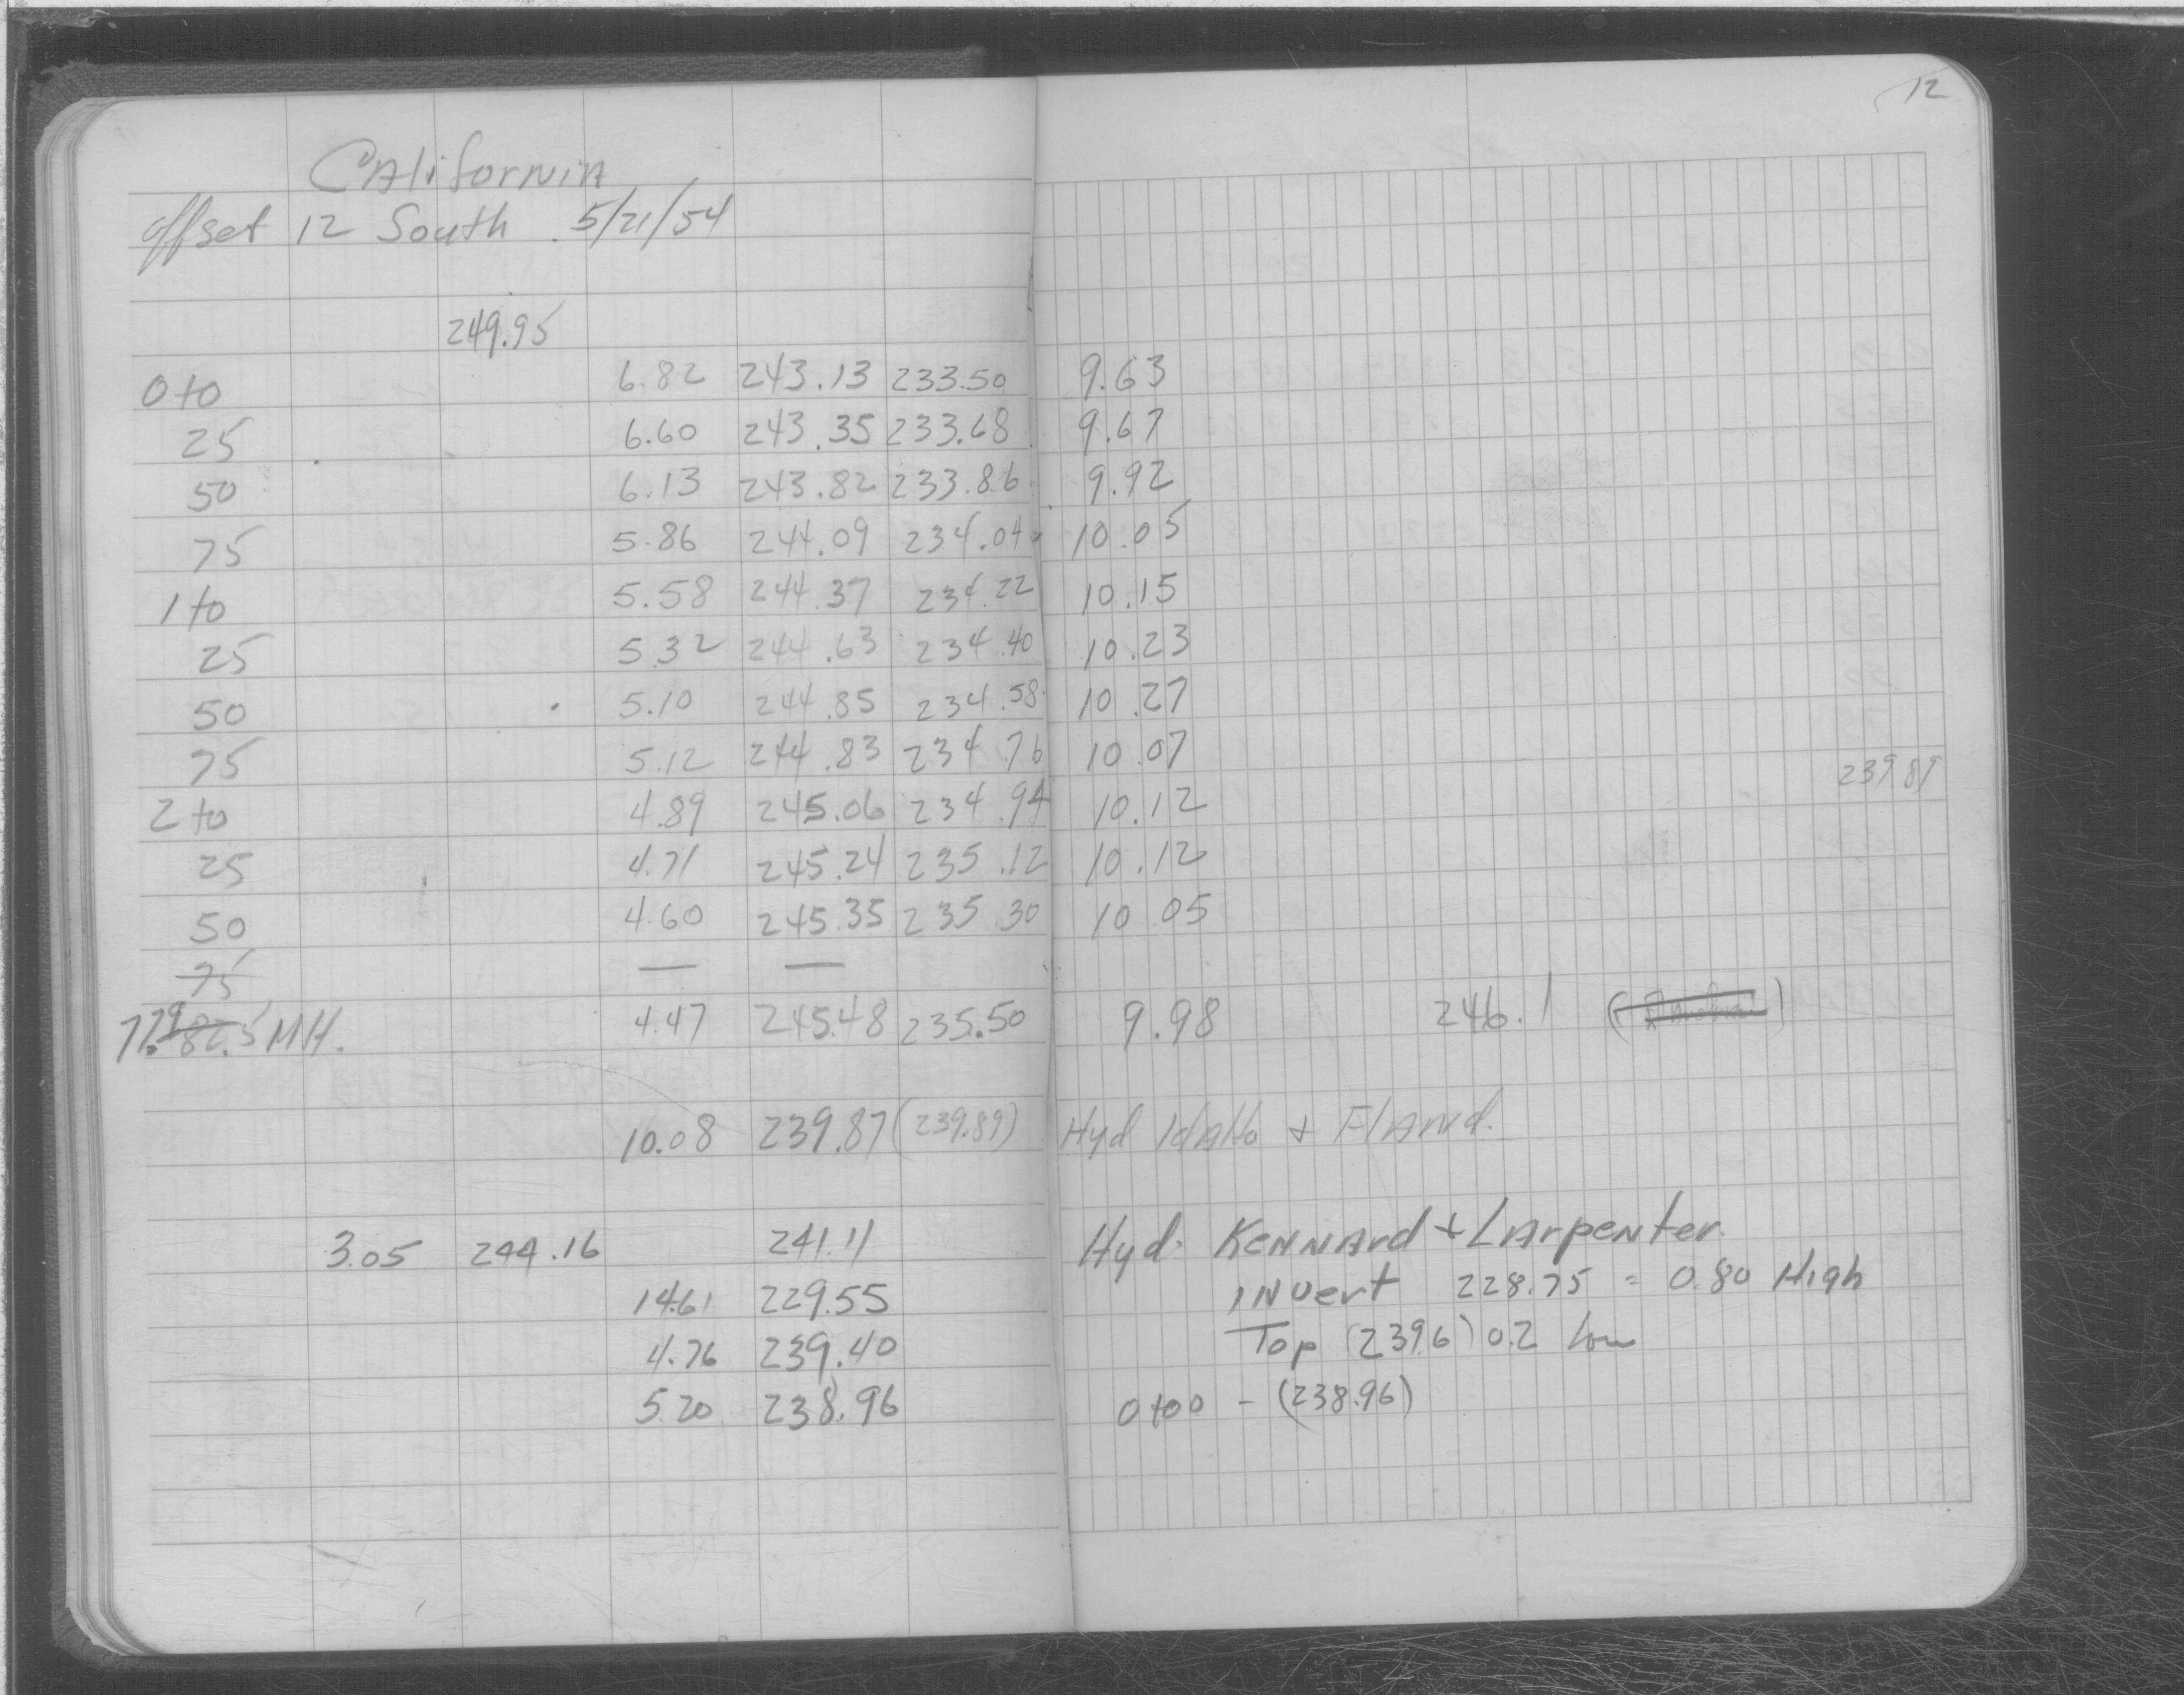 12
California
offset 12 South . 5/21/54
249.95
0+0 6.82 243.13 233.50 9.63
25 6.60 243.35 233.68 9.67
50 6.13 243.82 233.86 9.92
75 5.86 244.09 234.04 10.05
1+0 5.58 244.37 234.22 10.15
25 5.32 244.63 234.40 10.23
50 5.10 244.85 234.58 10.27
75 5.12 244.83 234.76 10.07
239 89
2+0 4.89 245.06 234.94 10.12
25 4.71 245.24 235.12 10.12
50 4.60 245.35 235.30 10.05
75 — —
77.9 82.5 MH. 4.47 245.48 235.50 9.98 246.1
10.08 239.87 (239.89) Hyd Idaho + Fland.
3.05 244.16 241.11 Hyd. Kennard + Larpenter.
14.61 229.55 Invert 228.75 = 0.80 High
4.76 239.40 Top (239.6) 0.2 low
5.20 238.96 0+00 - (238.96)